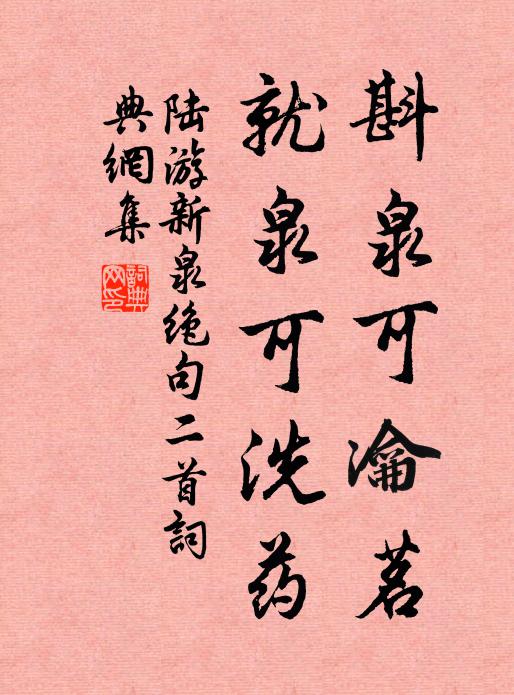 斟泉可瀹茗
就泉可洗药
陆游新泉绝句二首詞
典網集
詞典網印